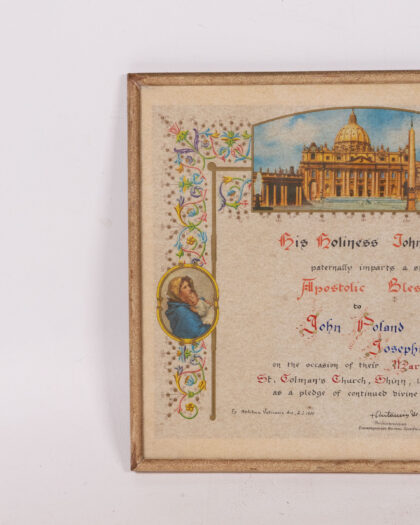 His Holiness John
paternally imparts a s
Apostolic Bles
to
John Poland
Joseph
on the occasion of their Mar
St. Colman's Church, Shinn, L
as a pledge of continued divine